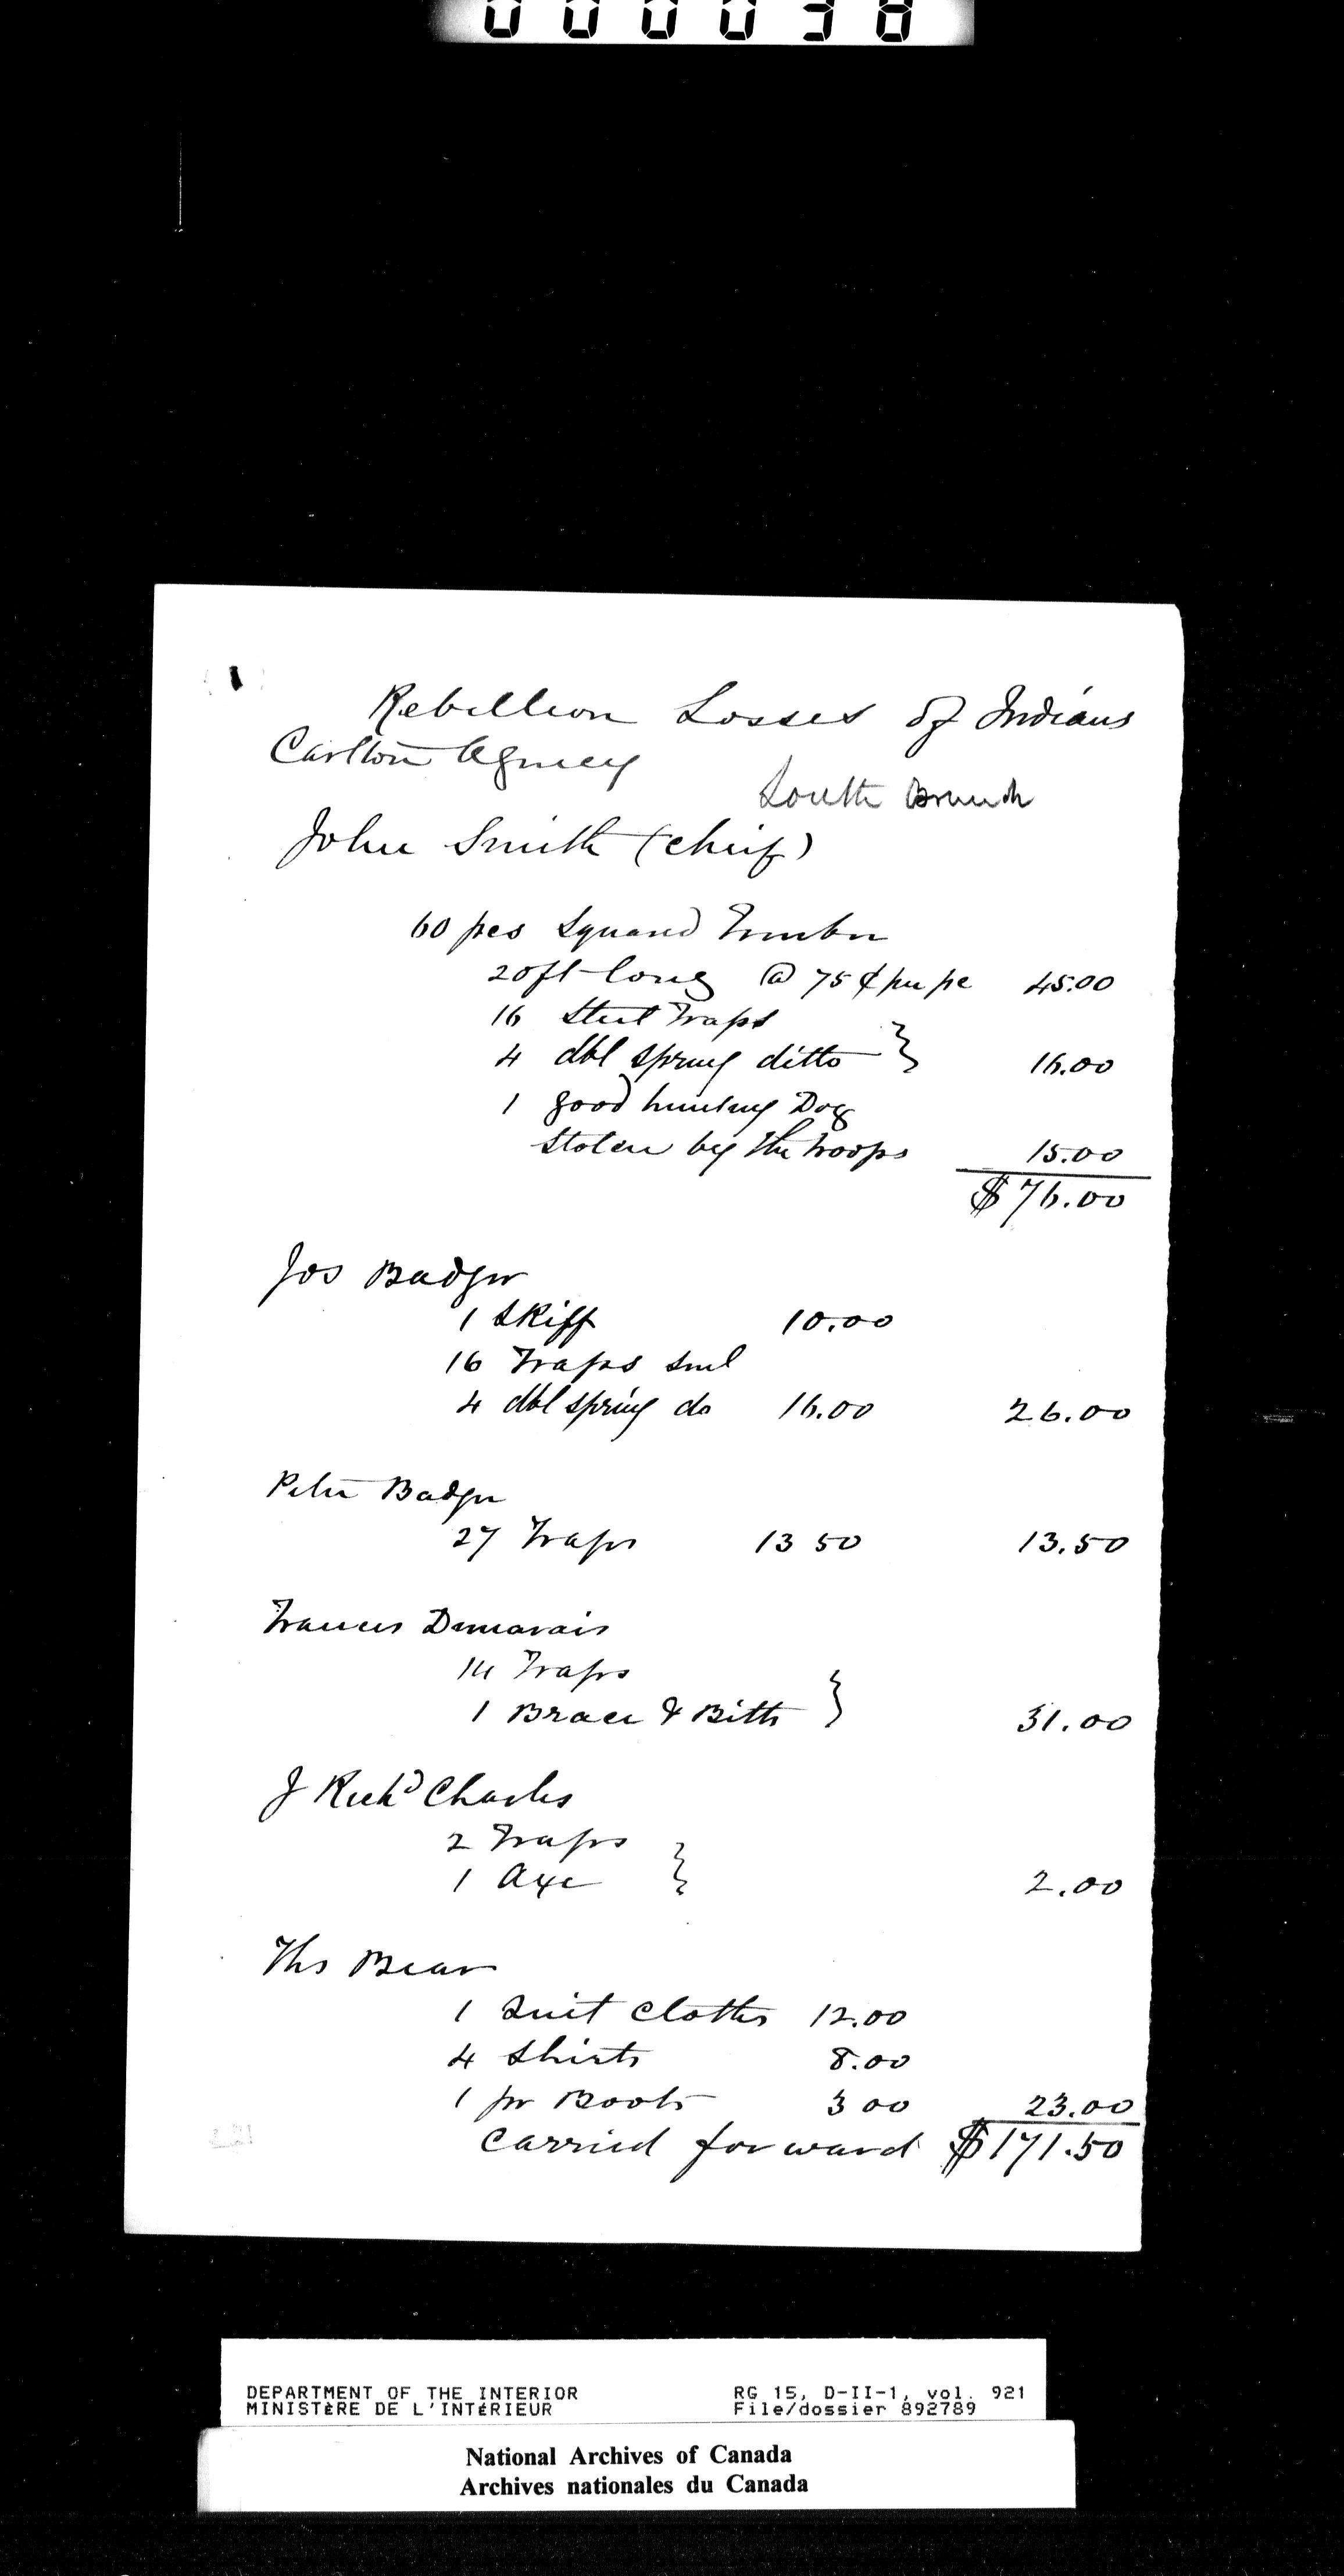 000038
1
Rebellion Losses of Indians
Carlton Agency
South Branch
John Smith (Chief)
60 pcs Squared Timber
20 ft long @ 75 ¢ per pc 45.00
16 Steel Traps
4 dbl spring ditto } 16.00
1 good hunting Dog
Stolen by the troops 15.00
$76.00
Jos Badger
1 Skiff 10.00
16 Traps sml
4 dbl spring do 16.00 26.00
Peter Badger
27 Traps 13 50 13.50
Francis Dumarais
14 Traps
1 Brace & Bitts } 31.00
J Richd Charles
2 Traps
1 Axe } 2.00
Ths Bear
1 Suit Cloths 12.00
4 Shirts 8.00
1 pr Boots 3 00 23.00
Carried forward $171.50
DEPARTMENT OF THE INTERIOR RG 15, D-II-1, vol. 921
MINISTÈRE DE L'INTÉRIEUR File/dossier 892789
National Archives of Canada
Archives nationales du Canada